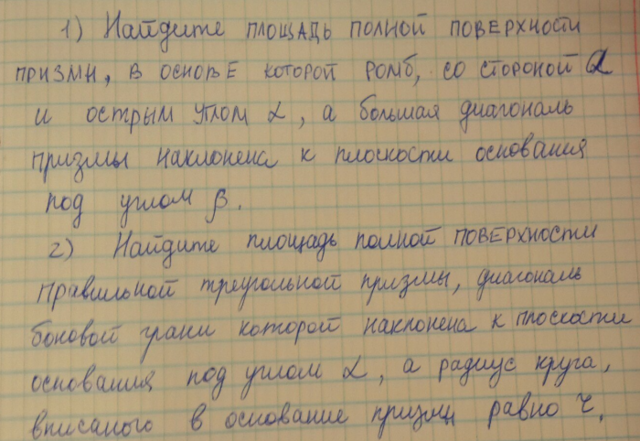 1) Найдите площадь полной поверхности
призмы, в основе которой ромб, со стороной a
и острым углом α, а большая диагональ
призмы наклонена к плоскости основания
под углом β.
2) Найдите площадь полной поверхности
правильной треугольной призмы, диагональ
боковой грани которой наклонена к плоскости
основания под углом α, а радиус круга,
вписаного в основание призмы равно r.